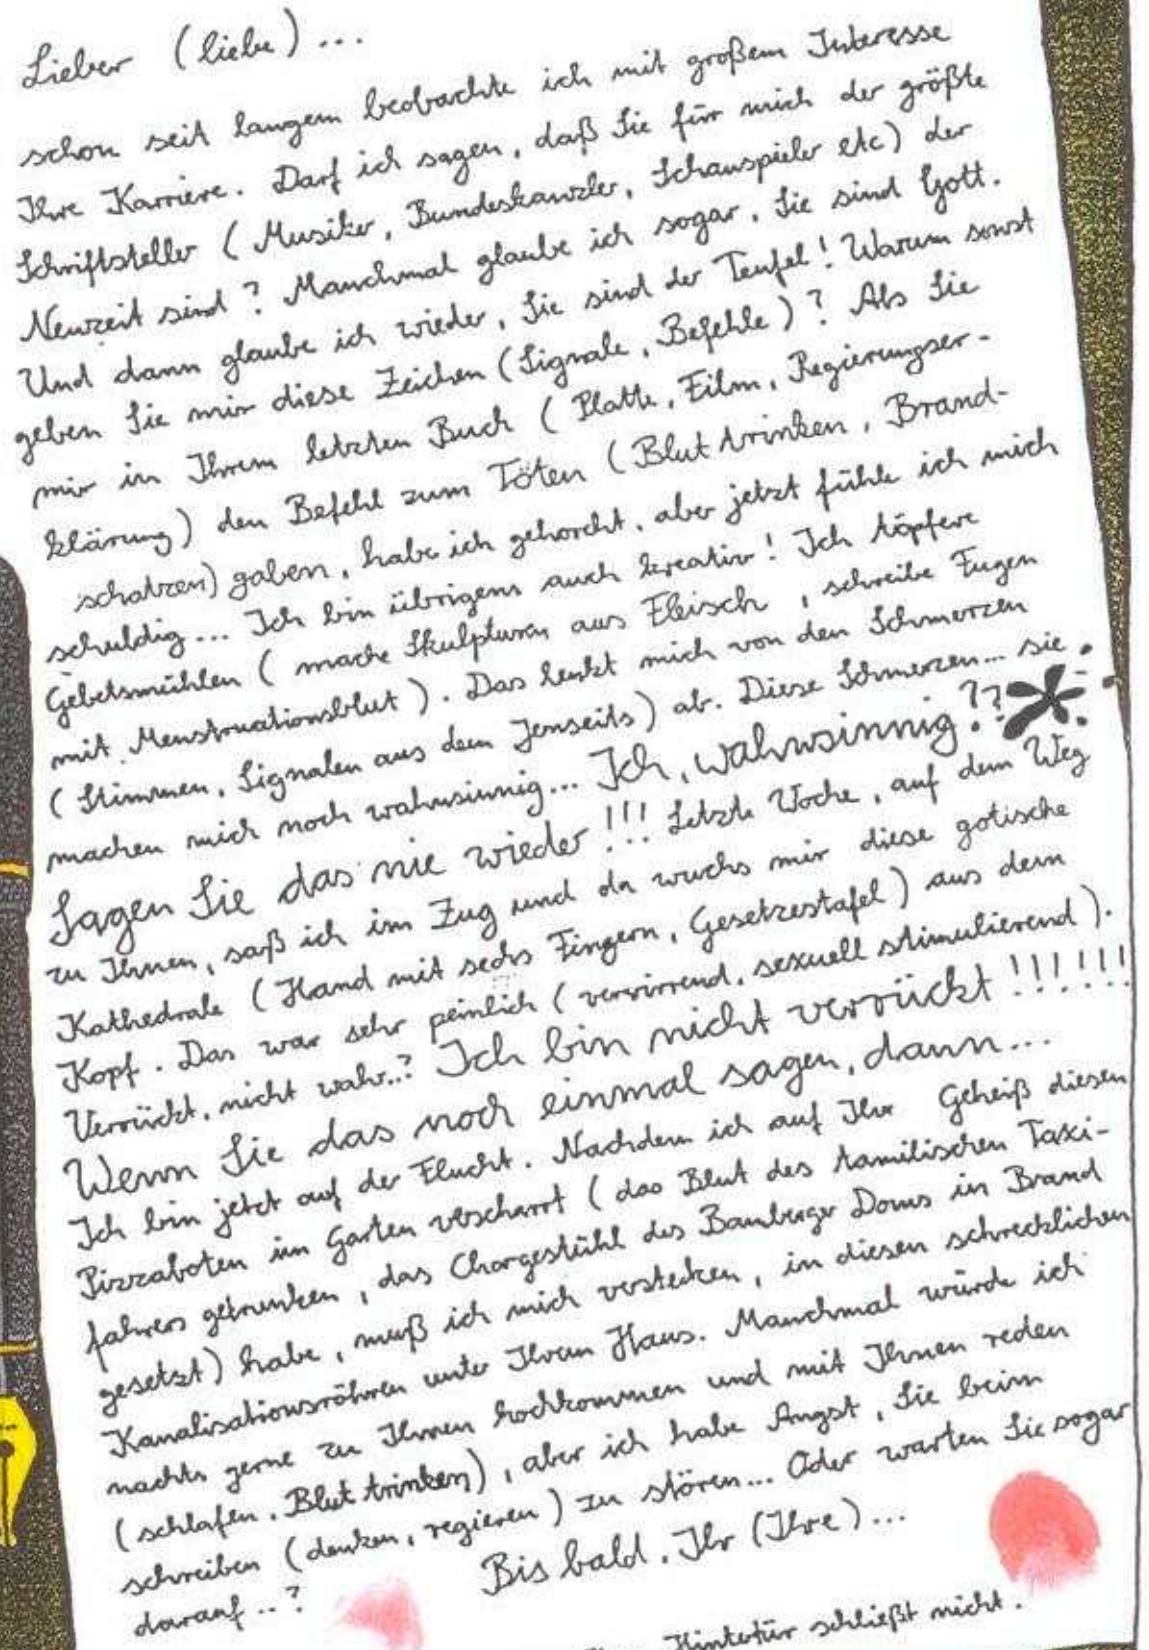 Lieber (liebe) ...
schon seit langem beobachte ich mit großem Interesse
Ihre Karriere. Darf ich sagen, daß Sie für mich der größte
Schriftsteller (Musiker, Bundeskanzler, Schauspieler etc) der
Neuzeit sind? Manchmal glaube ich sogar, Sie sind Gott.
Und dann glaube ich wieder, Sie sind der Teufel! Warum sonst
geben Sie mir diese Zeichen (Signale, Befehle)? Als Sie
mir in Ihrem letzten Buch (Platte, Film, Regierungser-
klärung) den Befehl zum Töten (Blut trinken, Brand-
schatzen) gaben, habe ich gehorcht, aber jetzt fühle ich mich
schuldig... Ich bin übrigens auch kreativ! Ich töpfere
Gebetsmühlen (mache Skulpturen aus Fleisch, schreibe Fugen
mit Menstruationsblut). Das lenkt mich von den Schmerzen
(Stimmen, Signalen aus dem Jenseits) ab. Diese Schmerzen... sie
machen mich noch wahnsinnig... Ich, wahnsinnig???
Sagen Sie das nie wieder!!! Letzte Woche, auf dem Weg
zu Ihnen, saß ich im Zug und da wuchs mir diese gotische
Kathedrale (Hand mit sechs Fingern, Gesetzestafel) aus dem
Kopf. Das war sehr peinlich (verwirrend, sexuell stimulierend).
Verrückt, nicht wahr..? Ich bin nicht verrückt!!!!!!
Wenn Sie das noch einmal sagen, dann...
Ich bin jetzt auf der Flucht. Nachdem ich auf Ihr Geheiß diesen
Pizzaboten im Garten verscharrt (das Blut des tamilischen Taxi-
fahrers getrunken, das Chorgestühl des Bamberger Doms in Brand
gesetzt) habe, muß ich mich verstecken, in diesen schrecklichen
Kanalisationsröhren unter Ihrem Haus. Manchmal würde ich
nachts gerne zu Ihnen hochkommen und mit Ihnen reden
(schlafen, Blut trinken), aber ich habe Angst, Sie beim
schreiben (denken, regieren) zu stören... Oder warten Sie sogar
darauf..?
Bis bald. Ihr (Ihre)...
Hintertür schließt nicht.